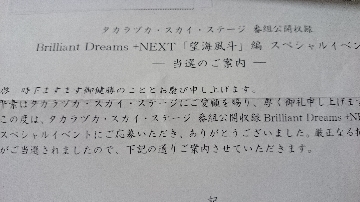 タカラヅカ・スカイ・ステージ 番組公開収録
Brilliant Dreams +NEXT「望海風斗」編 スペシャルイベン
― 当選のご案内 ―
時下ますます御健勝のこととお慶び申し上げます。
素はタカラヅカ・スカイ・ステージにご愛顧を賜り、厚く御礼申し上げます
この度は、タカラヅカ・スカイ・ステージ 番組公開収録 Brilliant Dreams +NE
スペシャルイベントにご応募いただき、ありがとうございました。厳正なる
がご当選されましたので、下記の通りご案内させていただきます。
記